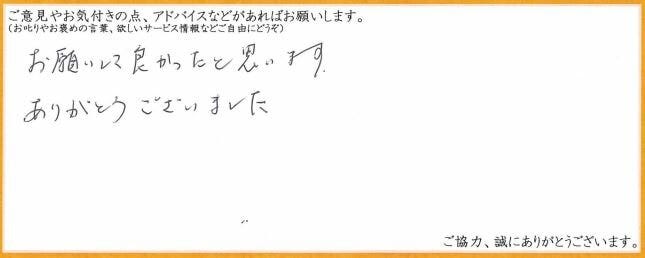 ご意見やお気付きの点、アドバイスなどがあればお願いします。
(お叱りやお褒めの言葉、欲しいサービス情報などご自由にどうぞ)
お願いして良かったと思います。
ありがとうございました
ご協力、誠にありがとうございます。